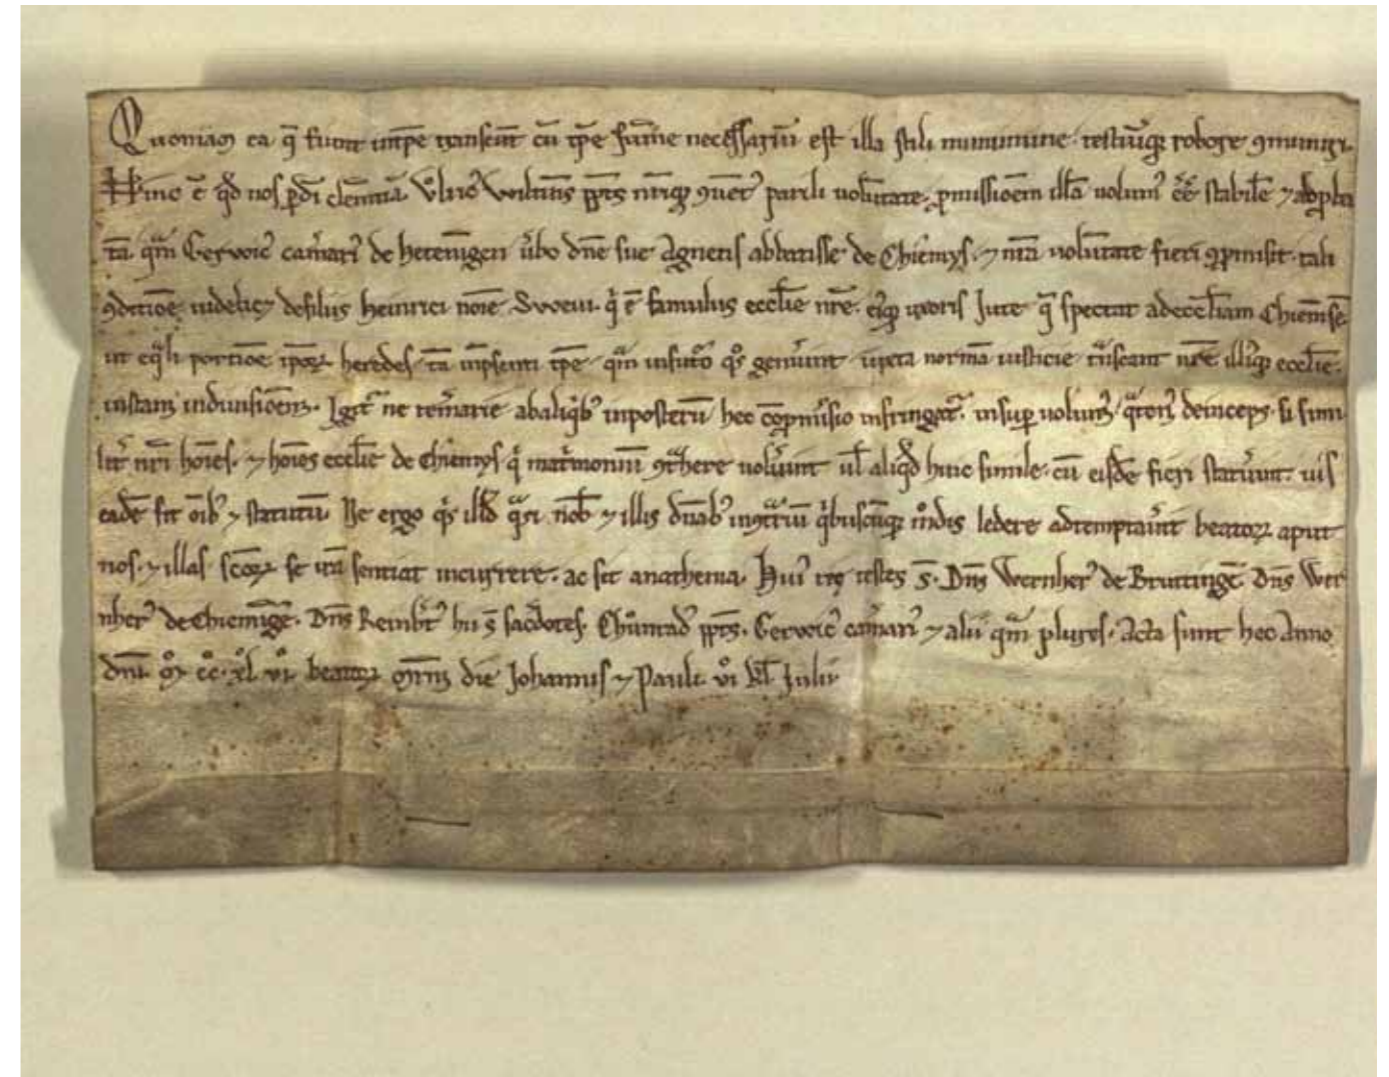 Quoniam ea q̄ fiunt intp̄e transeūt cū tp̄e sūme necessariū est illa stili munimine · testiūq; robore ꝯmuniri.
Hinc ē qd̊ nos p̄ di clem̄tiā Vlric᷒ ppts n̄rīq; ꝯuēt᷒ parili volūtate · p̄missioēm illā volum᷒ eē stabilē ⁊
tā q̄m Gerwic᷒ cam̄ari᷒ de v̄bo dn̄e sue Agnetis abbatisse de Chiemys · ⁊ n̄rā volūtate fieri ꝯpmisit · tali
ꝯditiōe videlicꝫ defilijs heinrici noīe · q̊ ē famulus eccl̄ie nr̄e · ei᷒q; uxoris Jute q̄ spectat adeccl̄iam Chiem̄sē
ut eq̄li portiōe ip̄oꝝ heredes · tā inp̄senti tp̄e · q̄m infut᷒o q̊s genu᷒int · iuxta normā iusticie t᷒nseant nr̄e illi᷒q; eccl̄ie ·
indiuisiōem · Igit᷒ ne tem̄arie abaliq̊b᷒ inposterū hec cōpmissio infringat᷒ · insup volum᷒ · deinceps · si simi
lit᷒ nr̄i hoīes · ⁊ hoīes eccl̄ie de Chiemys q̊ mat᷒moniū ꝯt᷒here volu᷒int ul᷒ aliq̊d huic simile · cū eisdē fieri statu᷒int · ius
eadē sit oīb᷒ ⁊ statutū · Ne ergo q̊s illd̄ nob᷒ ⁊ illis dn̄ab᷒ q̊buscūq; m̊dis ledere adtemptau᷒it beatoꝝ aput
nos · ⁊ illas sc̄oꝝ se irā sentiat incurrere · ac sit anathema · Hui᷒ rei testes s̄ · Dn̄s Wernher᷒ de Dn̄s Wer
nher᷒ deChiem̄ige · Dn̄s Reinb᷒t᷒ hii s̄ sac᷒dotes · Chunrad᷒ ppts · Gerwic᷒ cam̄ari᷒ ⁊ alii q̄m plures · Acta sunt hec Anno
dnī · m̊ · cc̊ · xl · vi̊ · beatoꝝ mr̄m die Johannis ⁊ Pauli · vi̊ kl̄ Julii ·